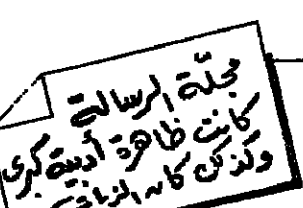 مجلة الرسالة
كانت ظاهرة أدبية كبرى
وكذلك كان الزيات